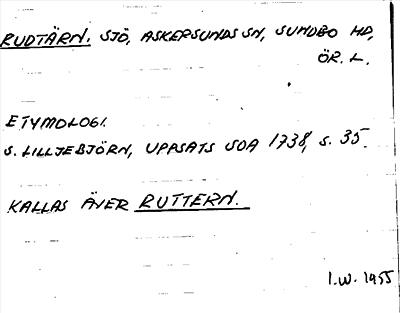 RUDTÄRN. SJÖ, ASKERSUNDS SN, SUNDBO HD,
ÖR. L.
ETYMOLOGI.
S. LILLJEBJÖRN, UPPSATS SOA 1738, S. 35.
KALLAS ÄVEN RUTTERN.
I.W. 1955